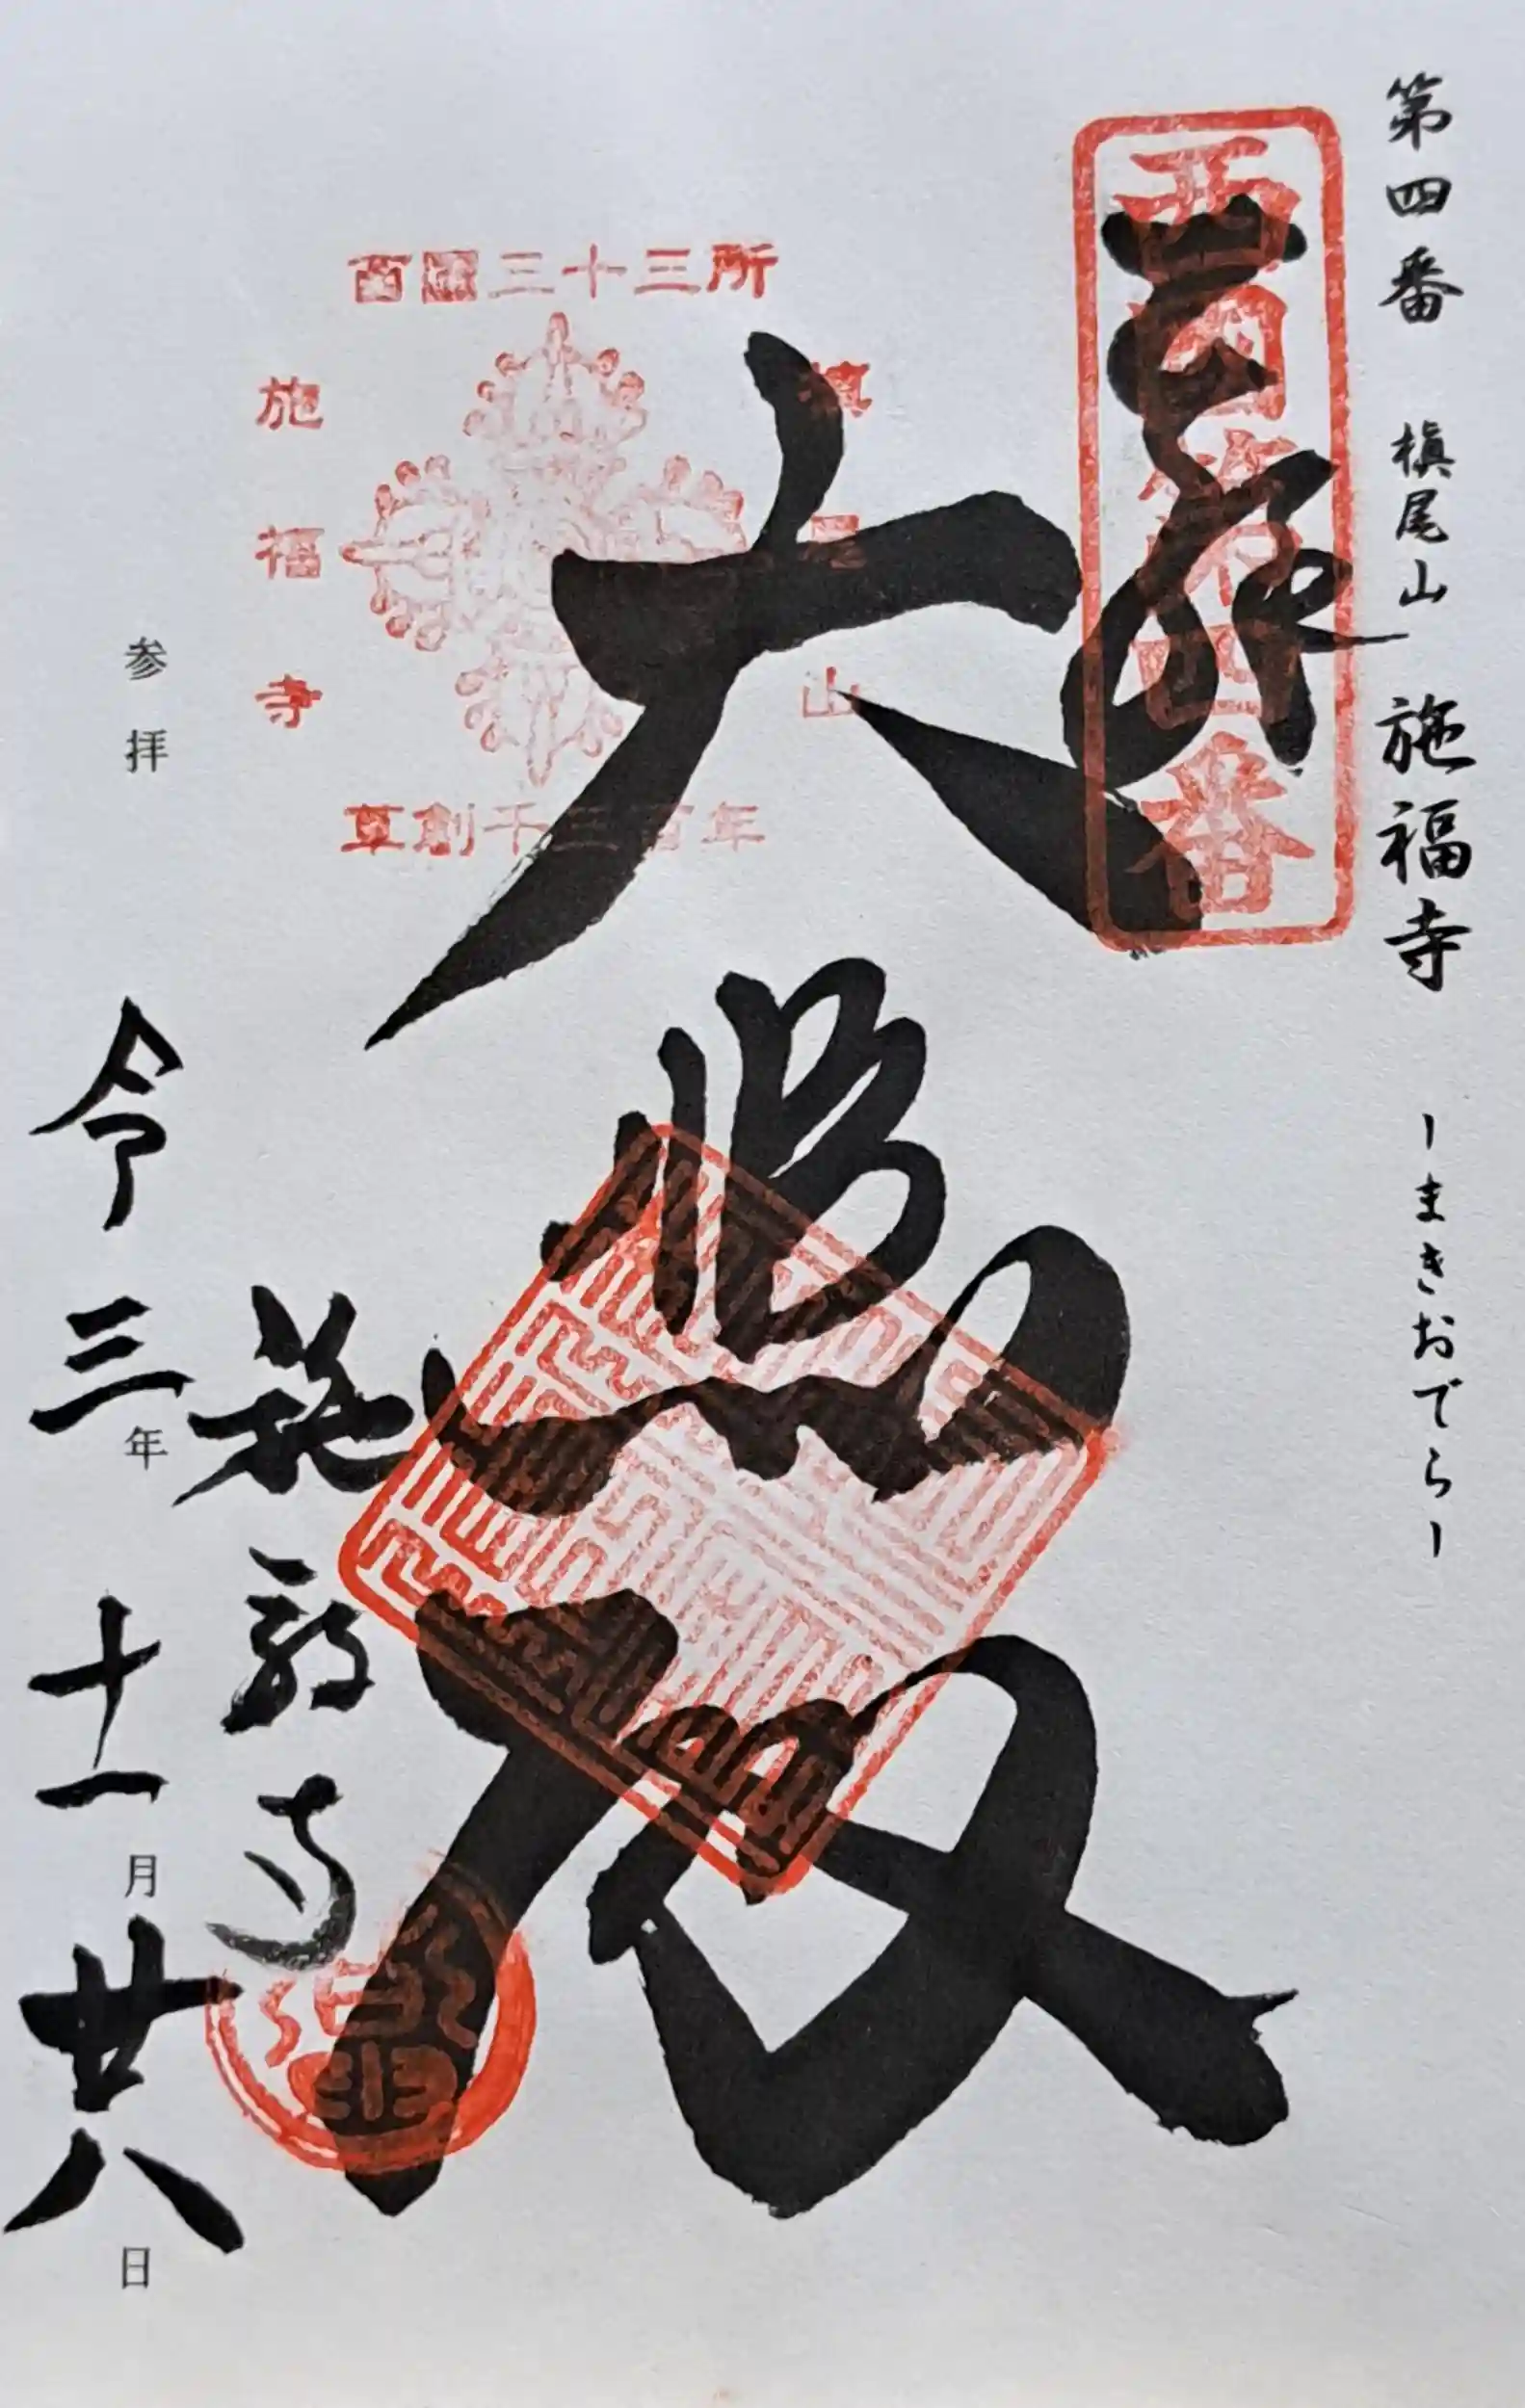 第四番 槇尾山 施福寺 ーまきおでらー
奉拝
西国第四番
大悲殿
西國三十三所
槇尾山
施福寺
草創千三百年
施福寺
参拝 令三年十一月廿八日